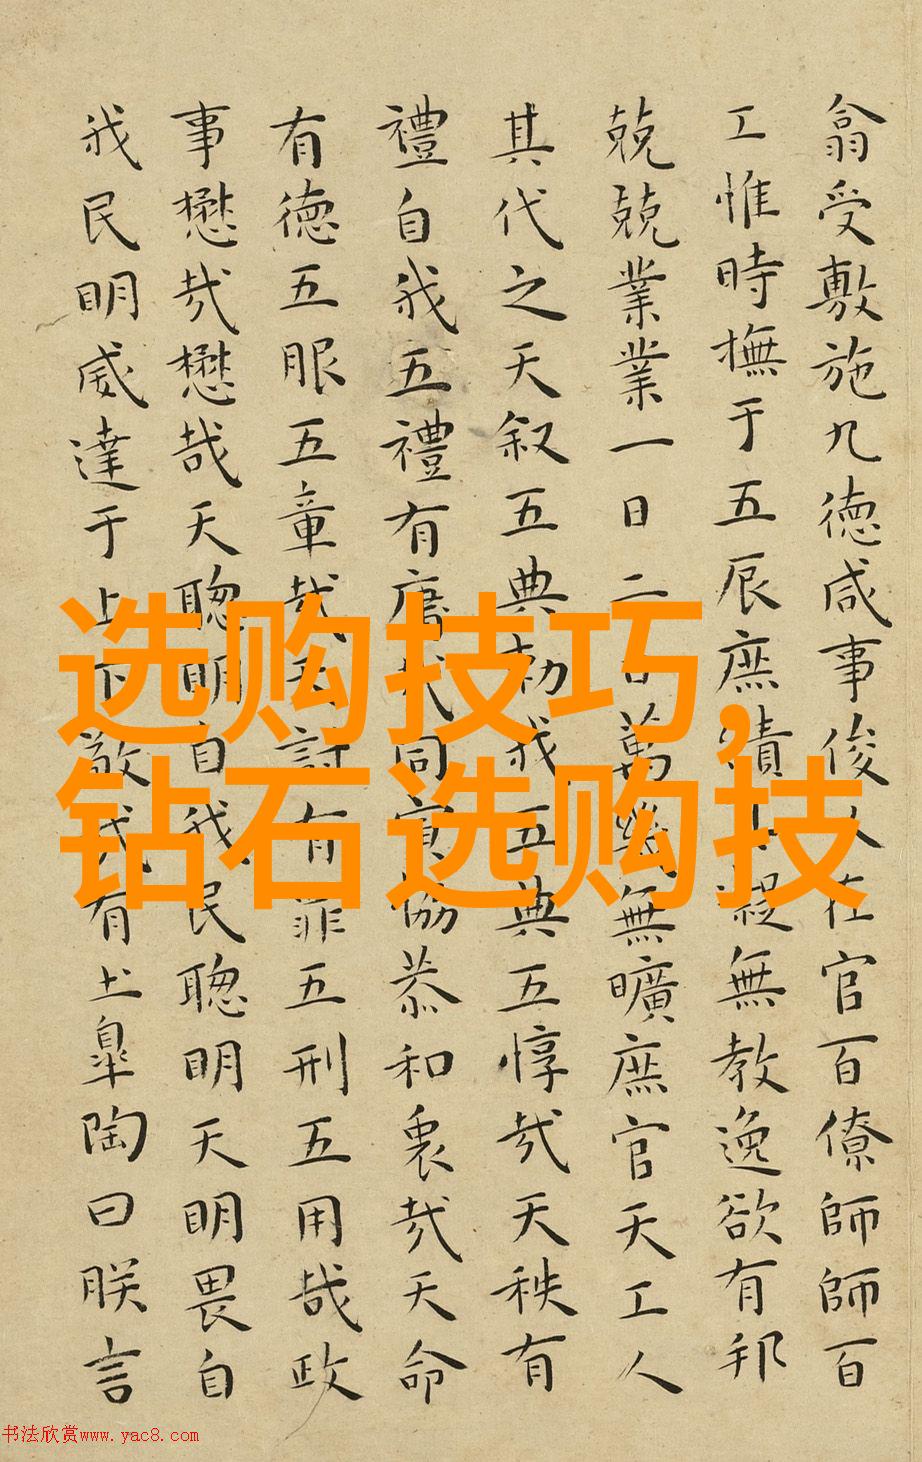 翕受敷施九徳咸事俊乂在官百僚師師百
工惟時撫于五辰庶績其凝無教逸欲有邦
兢兢業業一日二日萬幾無曠庶官天工人
其代之天叙五典勑我五典五惇哉天秩有
禮自我五禮有庸哉同寅協恭和衷哉天命
有徳五服五章哉天討有罪五刑五用哉政
事懋哉懋哉天聰明自我民聰明天明畏自
我民明威達于上下敬哉有土皋陶曰朕言
选购技巧,
钻石选购技
书法欣赏www.yac8.com